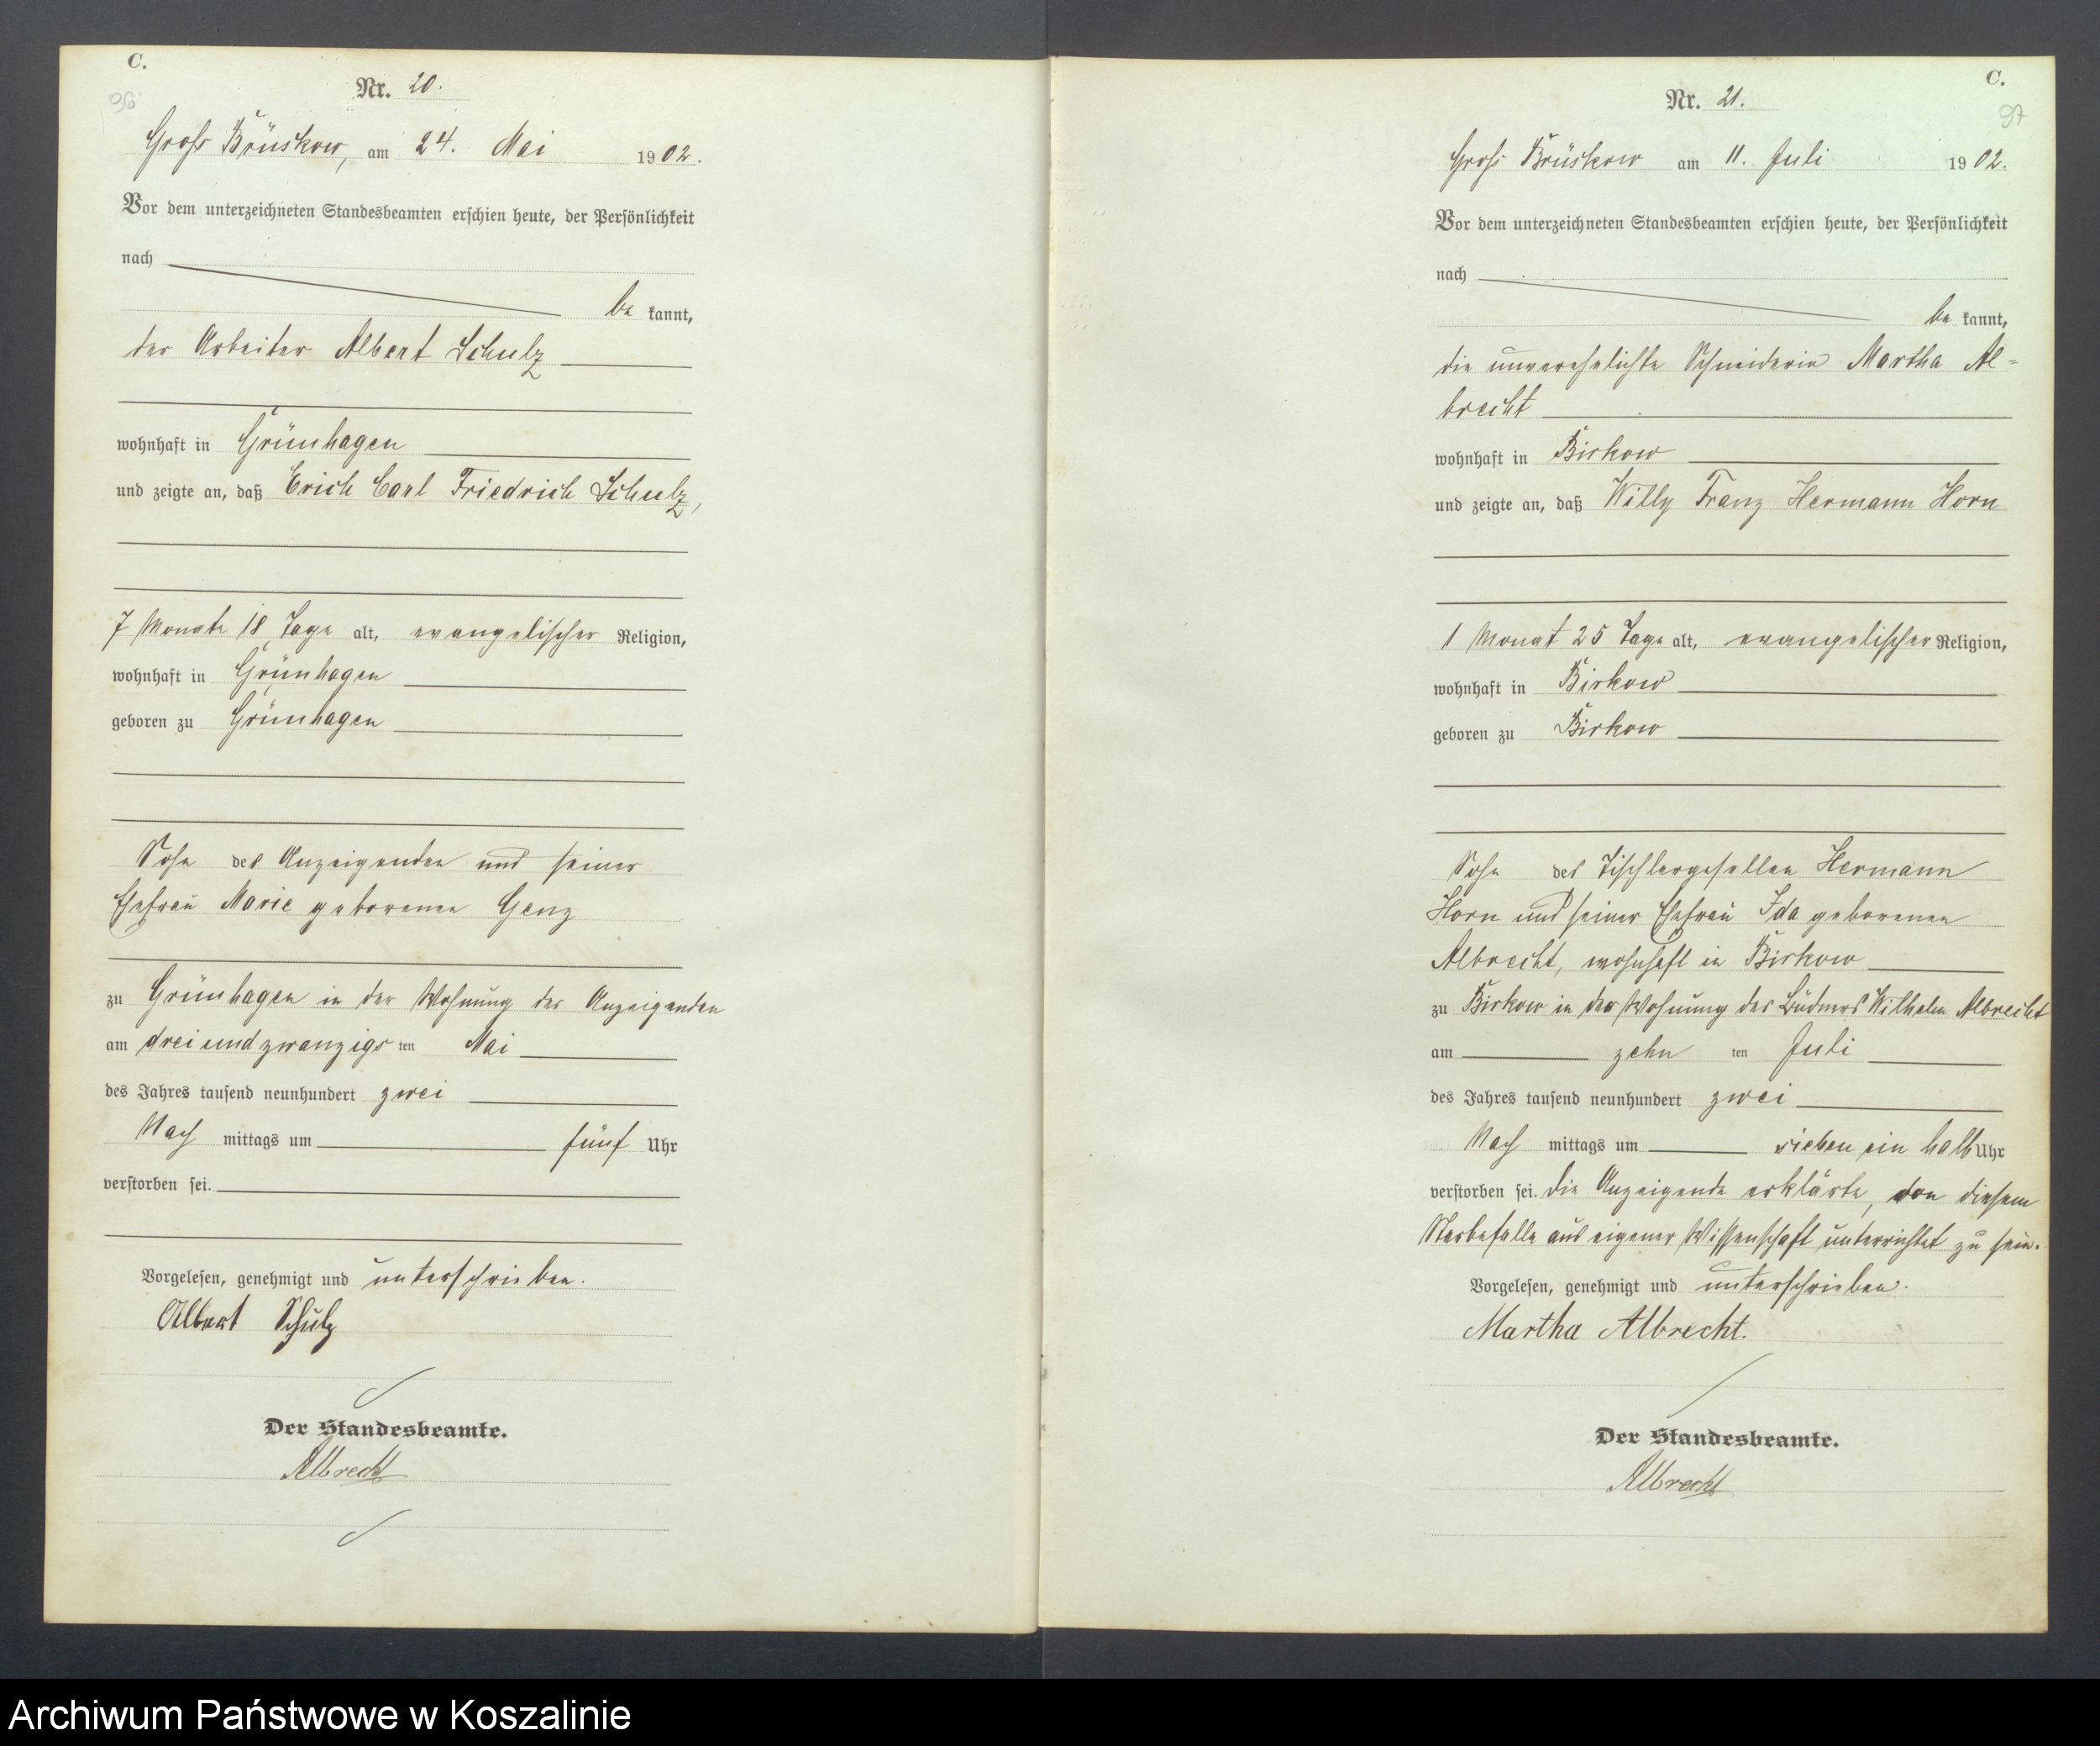 C.
96.
Nr. 20.
Groß Brüskow, am 24. Mai 1902.
Vor dem unterzeichneten Standesbeamten erschien heute, der Persönlichkeit
nach
be kannt,
der Arbeiter Albert Schulz
wohnhaft in Grünhagen
und zeigte an, daß Erich Carl Friedrich Schulz,
7 Monate 18 Tage alt, evangelischer Religion,
wohnhaft in Grünhagen
geboren zu Grünhagen
Sohn des Anzeigenden und seiner
Ehefrau Marie geborenen Genz
zu Grünhagen in der Wohnung des Anzeigenden
am dreiundzwanzigs ten Mai
des Jahres tausend neunhundert zwei
Nach mittags um fünf Uhr
verstorben sei.
Vorgelesen, genehmigt und unterschrieben.
Albert Schulz
Der Standesbeamte.
Albrecht
C.
97
Nr. 21.
Groß Brüskow am 11. Juli 1902.
Vor dem unterzeichneten Standesbeamten erschien heute, der Persönlichkeit
nach
be kannt,
die unverehelichte Schneiderin Martha Al=
brecht
wohnhaft in Birkow
und zeigte an, daß Willy Franz Hermann Horn
1 Monat 25 Tage alt, evangelischer Religion,
wohnhaft in Birkow
geboren zu Birkow
Sohn des Tischlergesellen Hermann
Horn und seiner Ehefrau Ida geborenen
Albrecht, wohnhaft in Birkow
zu Birkow in der Wohnung des Büdners Wilhelm Albrecht
am zehn ten Juli
des Jahres tausend neunhundert zwei
Nach mittags um sieben ein halb Uhr
verstorben sei. Die Anzeigende erklärte, von diesem
Sterbefalle aus eigener Wissenschaft unterrichtet zu sein.
Vorgelesen, genehmigt und unterschrieben.
Martha Albrecht.
Der Standesbeamte.
Albrecht
Archiwum Państwowe w Koszalinie